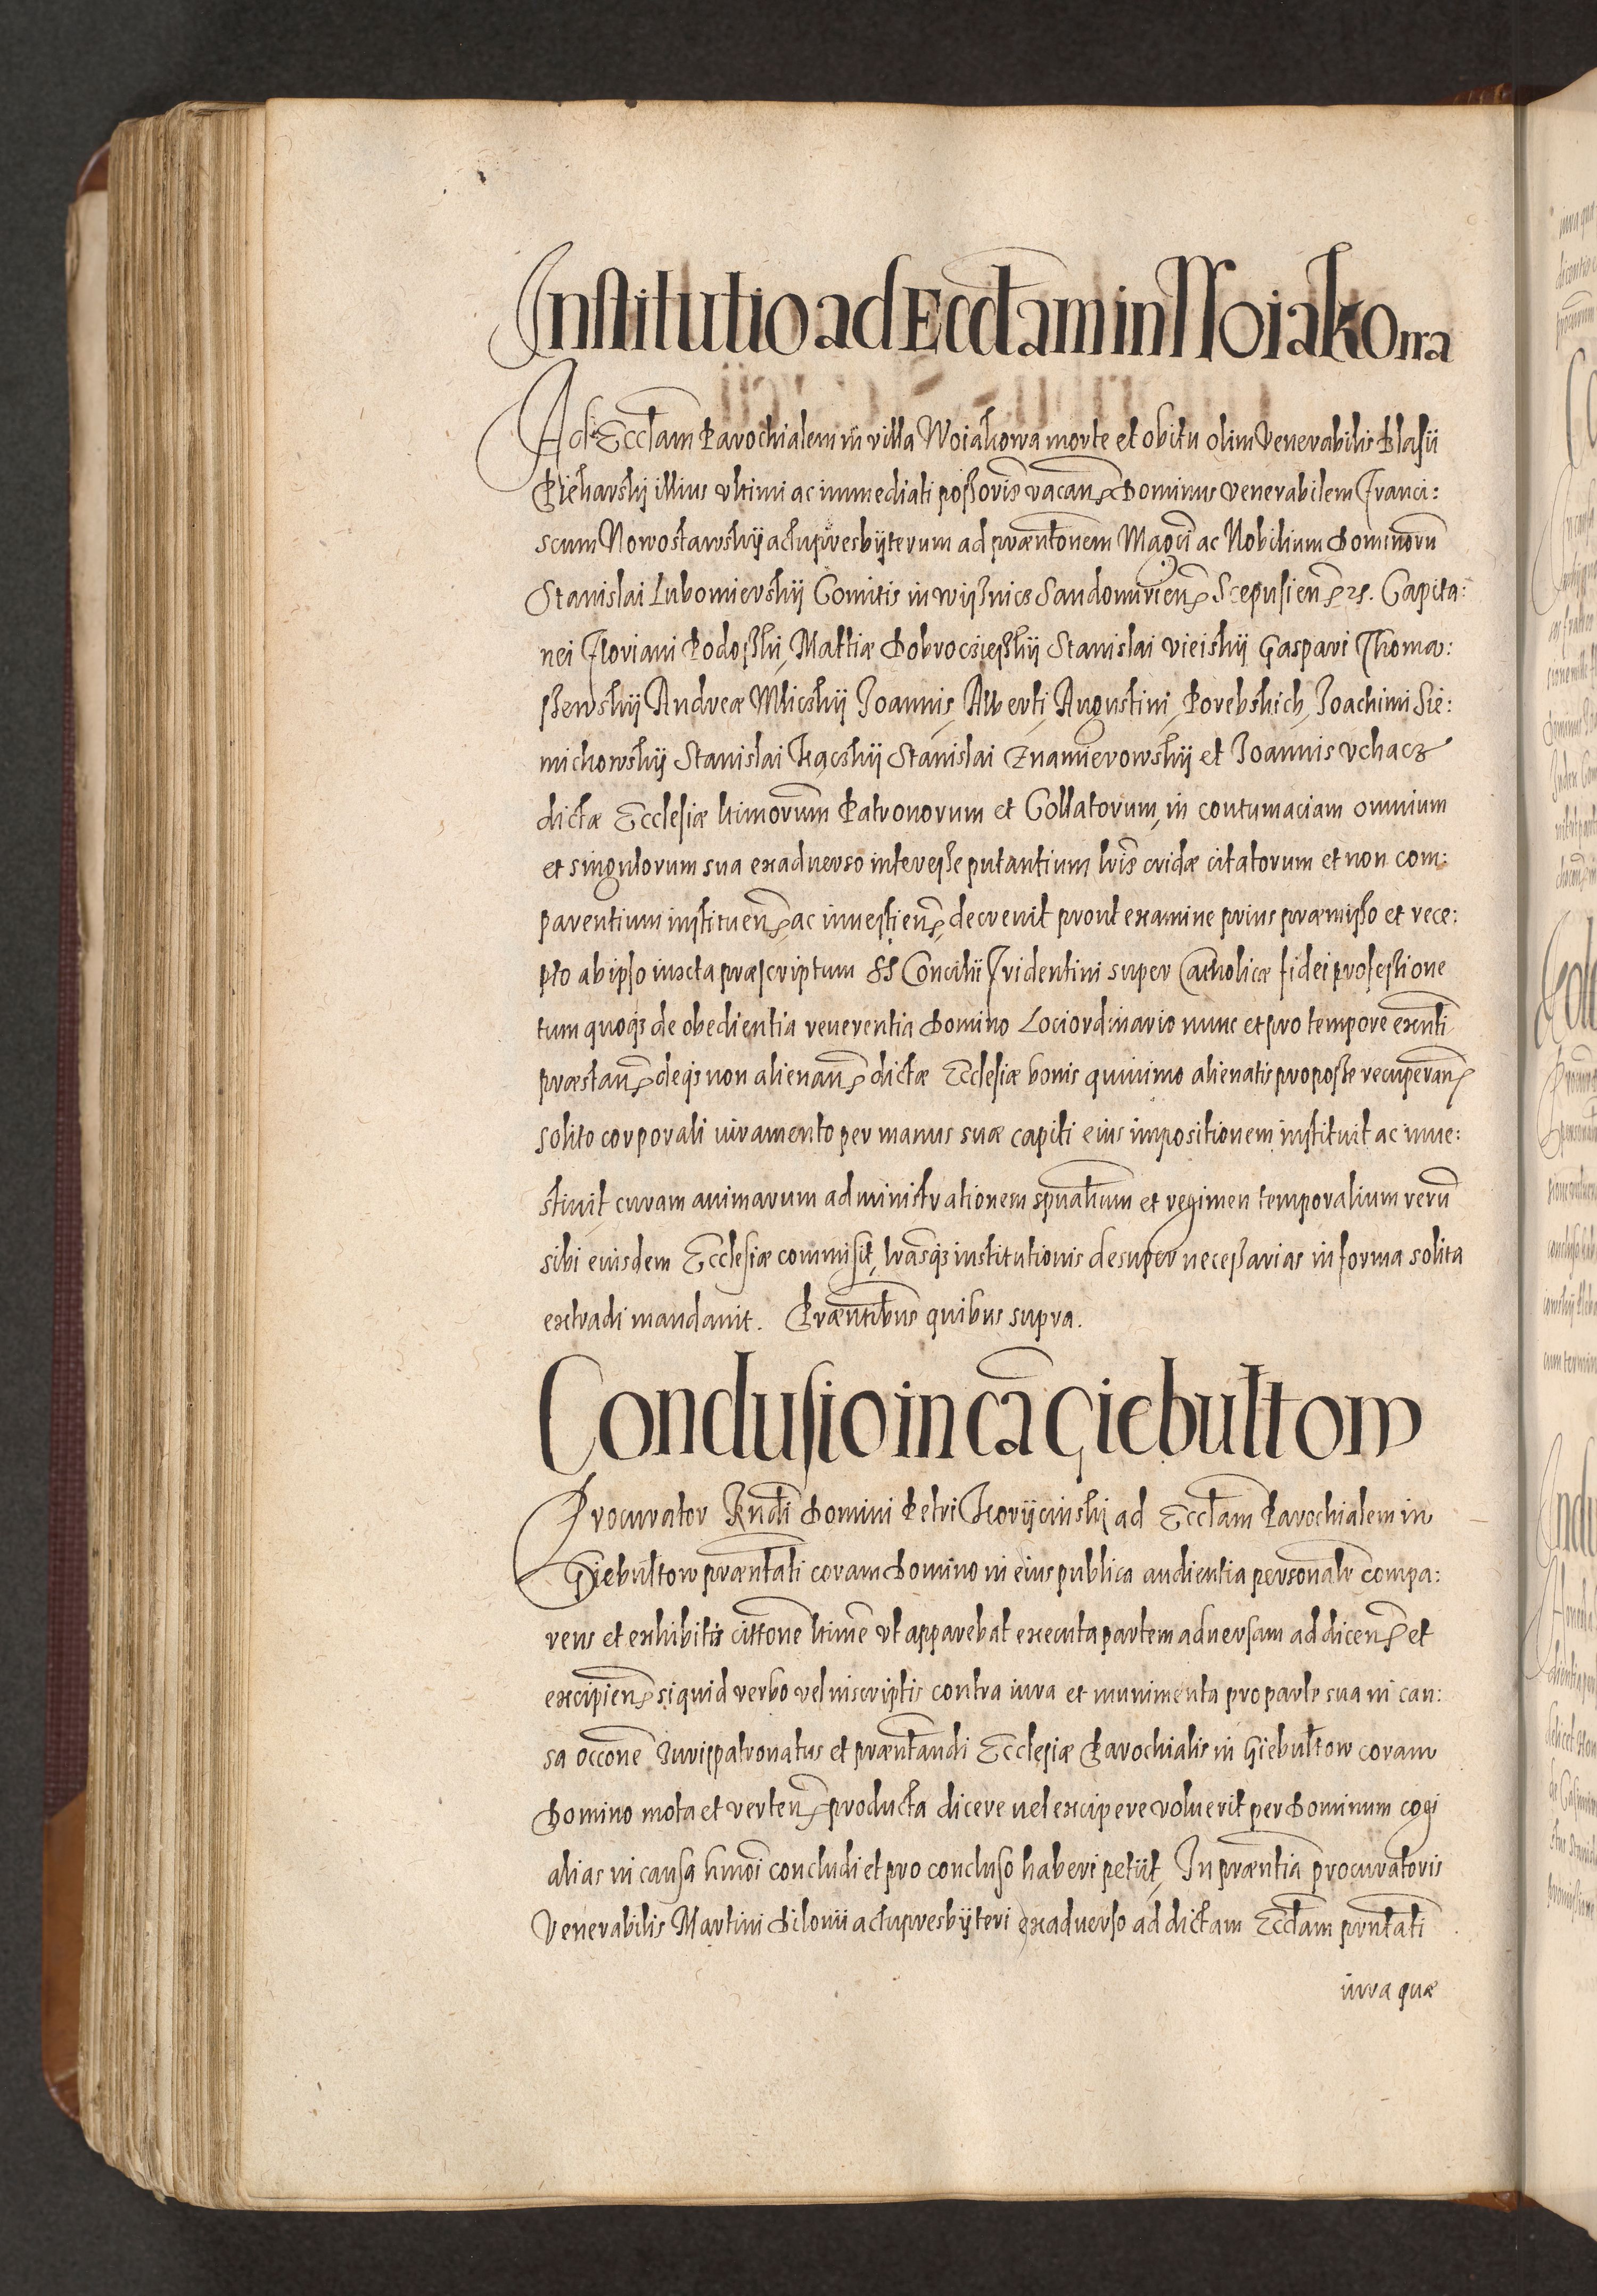 Institutio ad Ecclam in Woiakowa
Ad Ecclam Parochialem in villa Woiakowa morte et obitu olim Venerabilis Blasii
Piekarskÿ illius vltimi ac immediati possoris vacan. Dominus Venerabilem Franci:
scum Nowosławskÿ actupresbÿterum ad præntonem Magci ac Nobilium Dominoru
Stanislai Lubomierskÿ Comitis in Wyßnicz Sandomirien. Scepusien. zc. Capita:
nei Floriani Podoskÿ, Mattiæ Dobrocziesskÿ Stanislai vieiskÿ Gaspari Thoma:
ssewskÿ Andreæ Mliczkÿ Joannis, Alberti, Augustini, Porebskich, Joachimi Sie:
michowskÿ Stanislai Kączkÿ Stanislai Znamierowskÿ et Joannis Vchacz
dictæ Ecclesiæ ltimorum Patronorum et Collatorum, in contumaciam omnium
et singulorum sua exaduerso interesse putantium lris cridæ citatorum et non com:
parentium instituen. ac inuestien. decreuit prout examine prius præmisso et rece:
pto ab ipso iuxta præscriptum SS Concilii Tridentini super Catholicæ fidei professione
tum quoqs de obedientia reuerentia Domino Lociordinario nunc et pro tempore exnti
præstan. deqs non alienan. dictæ Ecclesiæ bonis quinimo alienatis pro posse recuperan.
solito corporali iuramento per manus suæ capiti eius impositionem instituit ac inue:
stiuit curam animarum administrationem spualium et regimen temporalium reru
sibi eiusdem Ecclesiæ commisit, lrasqs institutionis desuper necessarias in forma solita
extradi mandauit. Præntibus quibus supra.
Conclusio in ca Giebułtow
Procurator Rndi Domini Petri Korÿcinskÿ ad Ecclam Parochialem in
Giebułtow præntati coram Domino in eius publica audientia personalr compa:
rens et exhibitis cittone ltime vt apparebat executa partem aduersam ad dicen. et
excipien. siquid verbo vel inscriptis contra iura et munimenta pro parte sua in cau:
sa occone Jurispatronatus et præntandi Ecclesiæ Parochialis in Giebułtow coram
Domino mota et verten. producta dicere uel excipere voluerit per Dominum cogi
alias in causa hmoi concludi et pro concluso haberi petiit, In præntia procuratoris
Venerabilis Martini Silonii actupresbÿteri exaduerso ad dictam Ecclam prntati
iura quæ